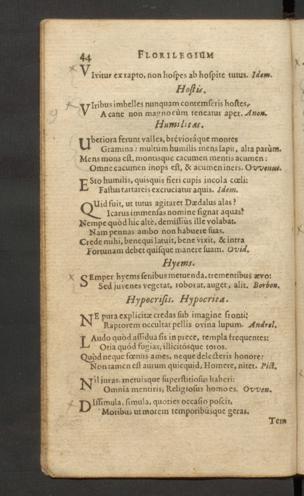 44 FLORILEGIUM
VIvitur ex rapto, non hospes ab hospite tutus. Idem.
Hostis.
VIribus imbelles nunquam contemseris hostes,
A cane non magno cum teneatur aper. Anon.
Humilitas.
UBeriora ferunt valles, brevioráque montes
Gramina: multum humilis mens sapit, alta parùm.
Mens mons est, montisque cacumen mentis acumen:
Omne cacumen inops est, & acumen iners. Ovvenus.
ESto humilis, quisquis fieri cupis incola cœli:
Fastus tartareis excruciatur aquis. Idem.
QUid fuit, ut tutus agitaret Dædalus alas?
Icarus immensas nomine signat aquas?
Nempe quòd hic altè, demissiùs ille volabat.
Nam pennas ambo non habuere suas.
Crede mihi, benequi latuit, bene vixit, & intra
Fortunam debet quisque manere suam. Ovid.
Hyems.
SEmper hyems senibus metuenda, trementibus ævo:
Sed juvenes vegetat, roborat, auget, alit. Borbon.
Hypocrisis. Hypocrita.
NE pura explicitæ credas sub imagine fronti;
Raptorem occultat pellis ovina lupum. Andrel.
LAudo quòd assidua sis in prece, templa frequentes:
Oria quòd fugias, illicitosque toros.
Quòd neque fœnus ames, neque delectêris honore:
Non tamen est aurum quicquid, Homere, nitet. Pist.
NIl juras, metuisque superstitiosus haberi:
Omnia mentiris, Religiosus homo es. Ovven.
DIssimula, simula, quoties occasio poscit,
Moribus ut morem temporibusque geras.
Tem